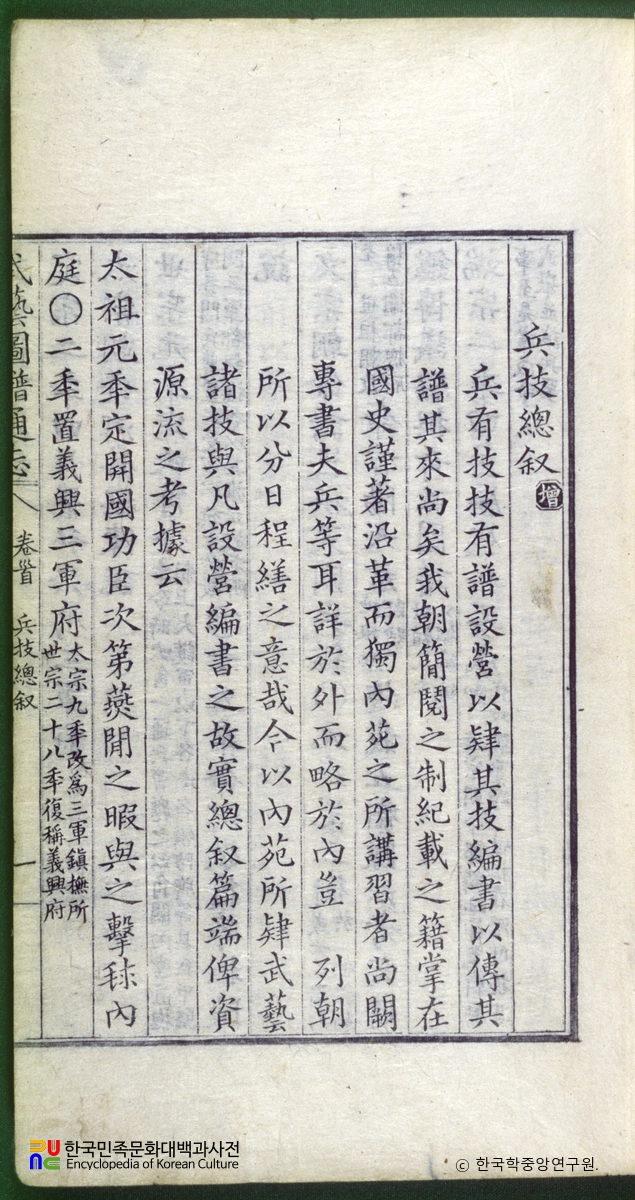 兵技總叙 增
兵有技技有譜設營以肄其技編書以傳其
譜其來尚矣我朝簡閱之制紀載之籍掌在
國史謹著沿革而獨內苑之所講習者尚闕
專書夫兵等耳詳於外而略於內豈 列朝
所以分日程繕之意哉今以內苑所肄武藝
諸技與凡設營編書之故實總叙篇端俾資
源流之考據云
太祖元秊定開國功臣次第䜩閒之暇與之擊毬內
庭〇二秊置義興三軍府太宗九秊改爲三軍鎭撫所
世宗二十八秊復稱義興府
武藝圖譜通志 卷首 兵技總叙 一
한국민족문화대백과사전
Encyclopedia of Korean Culture
ⓒ 한국학중앙연구원.